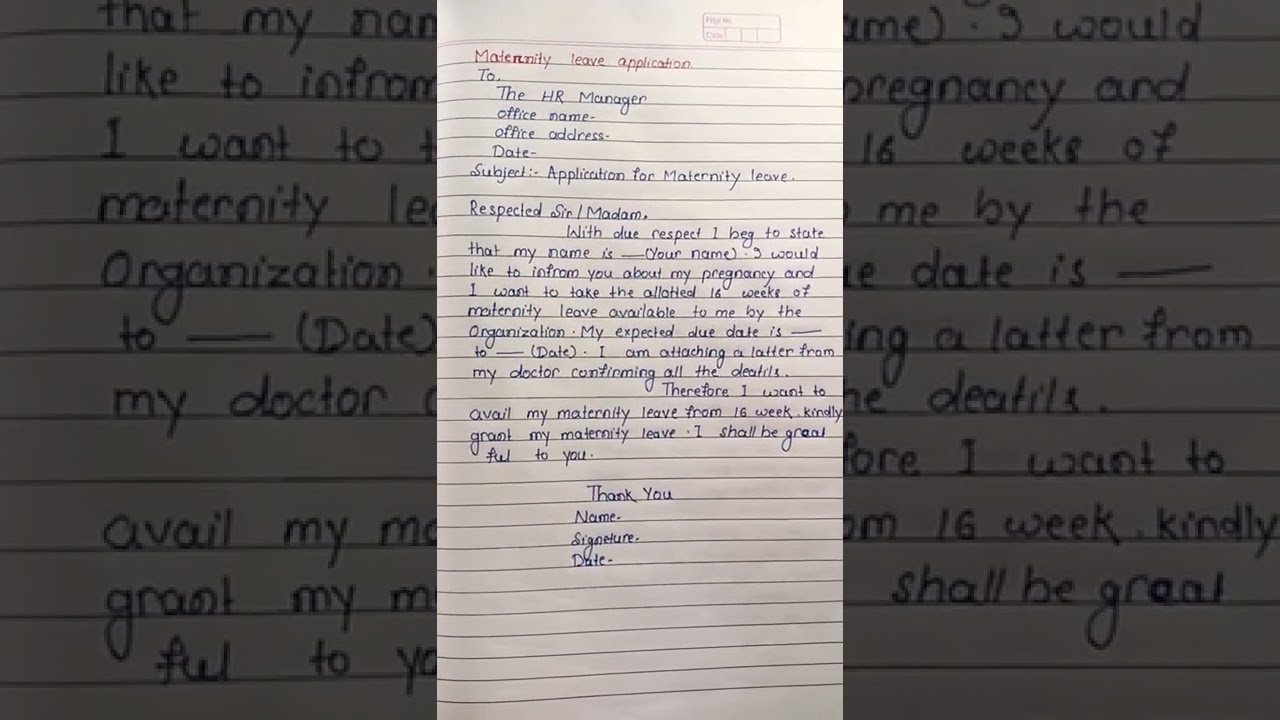 Page No.
Date
Maternity leave application.
To,
The HR Manager
office name-
office address-
Date-
Subject:- Application for Maternity leave.
Respected Sir/Madam,
With due respect I beg to state
that my name is —(Your name). I would
like to infrom you about my pregnancy and
I want to take the allotted 16 weeks of
maternity leave available to me by the
Organization. My expected due date is —
to — (Date). I am attaching a latter from
my doctor confirming all the deatils.
Therefore I want to
avail my maternity leave from 16 week. kindly
grant my maternity leave. I shall be great
ful to you.
Thank You
Name-
Signeture-
Date-